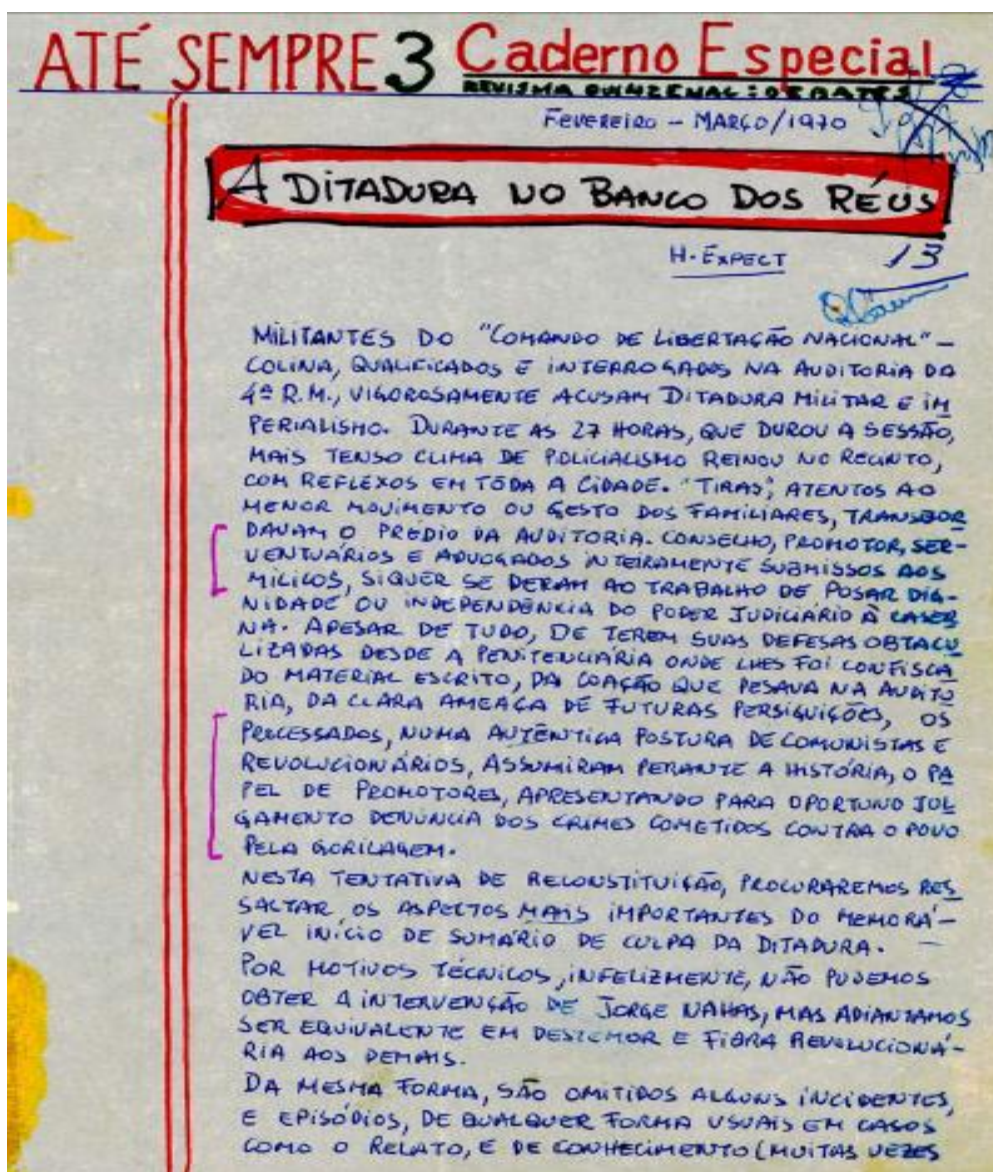 ATÉ SEMPRE 3 Caderno Especial
REVISTA QUINZENAL: DEBATES
FEVEREIRO - MARÇO/1970
A DITADURA NO BANCO DOS RÉUS
H-EXPECT
13
MILITANTES DO "COMANDO DE LIBERTAÇÃO NACIONAL" -
COLINA, QUALIFICADOS E INTERROGADOS NA AUDITORIA DA
4ª R.M., VIGOROSAMENTE ACUSAM DITADURA MILITAR E IM
PERIALISMO. DURANTE AS 27 HORAS, QUE DUROU A SESSÃO,
MAIS TENSO CLIMA DE POLICIALISMO REINOU NO RECINTO,
COM REFLEXOS EM TÔDA A CIDADE. "TIRAS", ATENTOS AO
MENOR MOVIMENTO OU GESTO DOS FAMILIARES, TRANSBOR
DAVAM O PRÉDIO DA AUDITORIA. CONSELHO, PROMOTOR, SER-
VENTUÁRIOS E ADVOGADOS INTEIRAMENTE SUBMISSOS AOS
MILICOS, SIQUER SE DERAM AO TRABALHO DE POSAR DIG-
NIDADE OU INDEPENDÊNCIA DO PODER JUDICIÁRIO À CASER
NA. APESAR DE TUDO, DE TEREM SUAS DEFESAS OBTACU
LIZADAS DESDE A PENITENCIÁRIA ONDE LHES FOI CONFISCA
DO MATERIAL ESCRITO, DA COAÇÃO QUE PESAVA NA AUDITO
RIA, DA CLARA AMEAÇA DE FUTURAS PERSIGUIÇÕES, OS
PROCESSADOS, NUMA AUTÊNTICA POSTURA DE COMUNISTAS E
REVOLUCIONÁRIOS, ASSUMIRAM PERANTE A HISTÓRIA, O PA
PEL DE PROMOTORES, APRESENTANDO PARA OPORTUNO JUL
GAMENTO DENÚNCIA DOS CRIMES COMETIDOS CONTRA O POVO
PELA GORILAGEM.
NESTA TENTATIVA DE RECONSTITUIÇÃO, PROCURAREMOS RES
SALTAR OS ASPECTOS MAIS IMPORTANTES DO MEMORÁ-
VEL INÍCIO DE SUMÁRIO DE CULPA DA DITADURA.
POR MOTIVOS TÉCNICOS, INFELIZMENTE, NÃO PUDEMOS
OBTER A INTERVENÇÃO DE JORGE NAHAS, MAS ADIANTAMOS
SER EQUIVALENTE EM DESTEMOR E FIBRA REVOLUCIONÁ-
RIA AOS DEMAIS.
DA MESMA FORMA, SÃO OMITIDOS ALGUNS INCIDENTES,
E EPISÓDIOS, DE QUALQUER FORMA USUAIS EM CASOS
COMO O RELATO, E DE CONHECIMENTO (MUITAS VEZES